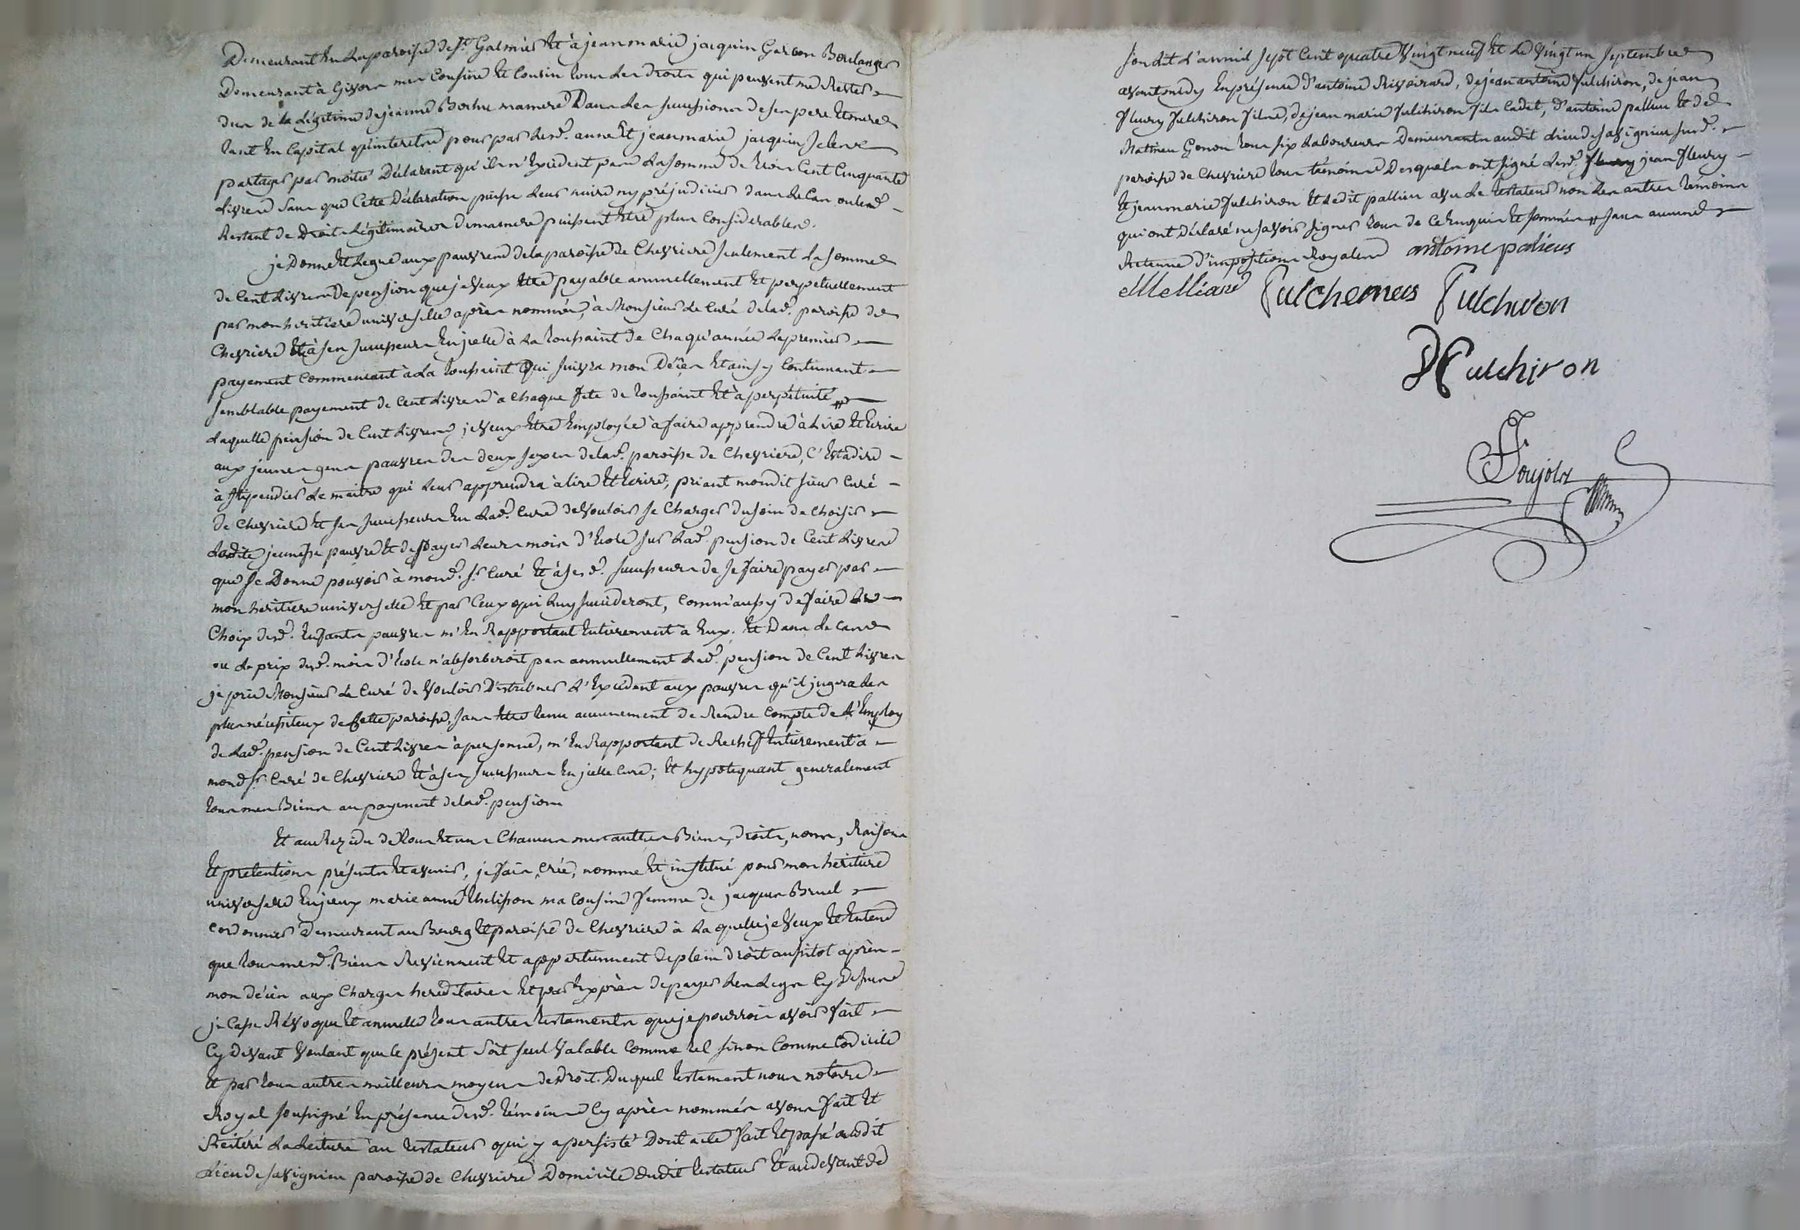 Demeurant En La paroisse de St. Galmier Et à jean marie jacquin Garcon Boulanger
Demeurant à Givors mes Cousine Et Cousin tous Les Droits qui peuvent me Rester
dus de la Légitime de jeanne Bertue ma mere Dans Les successions de ses pere Et mere
tant En Capital qu'interets pour par Lesd. anne Et jean marie jacquin se Les
partager par moitié Déclarant qu'ils n'Excedent pas La somme de trois Cent Cinquante
Livres sans que Cette Déclaration puisse Leur nuire ny préjudicier dans Le Cas ou Lesd.
Restant de Droits Légitimaires de ma mere puissent Etre plus Considerables.
je Donne Et Legue aux pauvres de la paroisse de Chevrieres seulement La somme
de Cent Livres De pension que je veux Etre payable annuellement Et perpetuellement
par mon heritiere universelle après nommée, à Monsieur Le Curé de lad. paroisse de
Chevrieres Et à ses successeurs En jcelle à La toussaint de Chaqu'année Le premier
payement Commencant à La toussaint Qui suivra mon Décès Et ainsy Continuant
semblable payement de Cent Livres à Chaque fete de toussaint Et à perpétuité
Laquelle pension de Cent Livres je veux Etre Employée à faire apprendre à Lire Et Ecrire
aux jeunes gens pauvres des deux sexes de lad. paroisse de Chevrieres, C'Estadire
à stipendier Le maitre qui Leur apprendra à lire Et Ecrire, priant mondit sieur Curé
de Chevrieres Et ses successeurs En Lad. Cure de vouloir se Charger du soin de Choisir
Ladite jeunesse pauvre Et de payer Leurs mois d'Ecole sur Lad. pension de Cent Livres
que je Donne pouvoir à mond. sr. Curé Et à sesd. successeurs de se faire payer par
mon heritiere universelle Et par Ceux qui Luy succéderont, comm'aussy de faire Le
Choix desd. Enfants pauvres m'En Rapportant Entierement à Eux; Et Dans le cas
ou Le prix desd. mois d'Ecole n'absorberoit pas annuellement Lad. pension de Cent Livres
je prie Monsieur Le Curé de vouloir Distribuer L'Excedent aux pauvres qu'il jugera Les
plus nécessiteux de Cette paroisse, sans Etre tenu aucunement de Rendre Compte de L'Employ
de Lad. pension de Cent Livres à personne, m'En Rapportant de Rechef Entierement à
mond. sr. Curé de Chevrieres Et à ses successeurs En jcelle Cure; Et hypotequant generalement
tous mes Biens au payement de lad. pension
Et au Rezidu de tous Et uns Chacuns mes autres Biens, droits, noms, Raisons
Et prétentions présents Et avenir, je fais, Crée, nomme Et institué pour mon heritiere
universelle En jceux marie anne Thelisson ma Cousine femme de jacques Bruel
Cordonnier Demeurant au Bourg Et paroisse de Chevrieres à La quelle je veux Et Entend
que tous mesd. Biens Reviennent Et appartiennent de plein droit aussitot après
mon décès aux Charges hereditaires Et par Exprès de payer Les Legs Cy Dessus
je Casse Révoque Et annulle tous autres testaments que je pourrois avoir fait
Cy devant voulant que le présent soit seul valable Comme tel sinon Comme Codicile
Et par tous autres meilleurs moyens de Droit. Duquel testament nous notaire
Royal soussigné En présence desd. témoins Cy après nommés avons fait Et
Réitéré La Lecture au testateur qui y a persisté Dont acte fait Et passé audit
Lieu de Savignieu paroisse de Chevrieres Domicile dudit testateur Et audevant de
son dit L'an mil sept Cent quatre vingt neuf Et Le vingt un septembre
avant midy En présence d'antoine Rivoirard, de jean antoine fulchiron, de jean
fleury fulchiron fils, de jean marie fulchiron fils Cadet, d'antoine pallieu Et de
Mathieu Gonon tous six Laboureurs Demeurants audit Lieu de Savignieu susd.
paroisse de Chevrieres tous témoins Desquels ont signé Lesd. jean fleury
Et jean marie fulchiron Et Ledit pallieu avec Le testateur non Les autres témoins
qui ont Déclaré ne savoir signer tous de Ce Enquis Et sommés sans aucune
Retenue d'impositions Royales antoine palieus
fulchiron
fulchiron
Poujolz